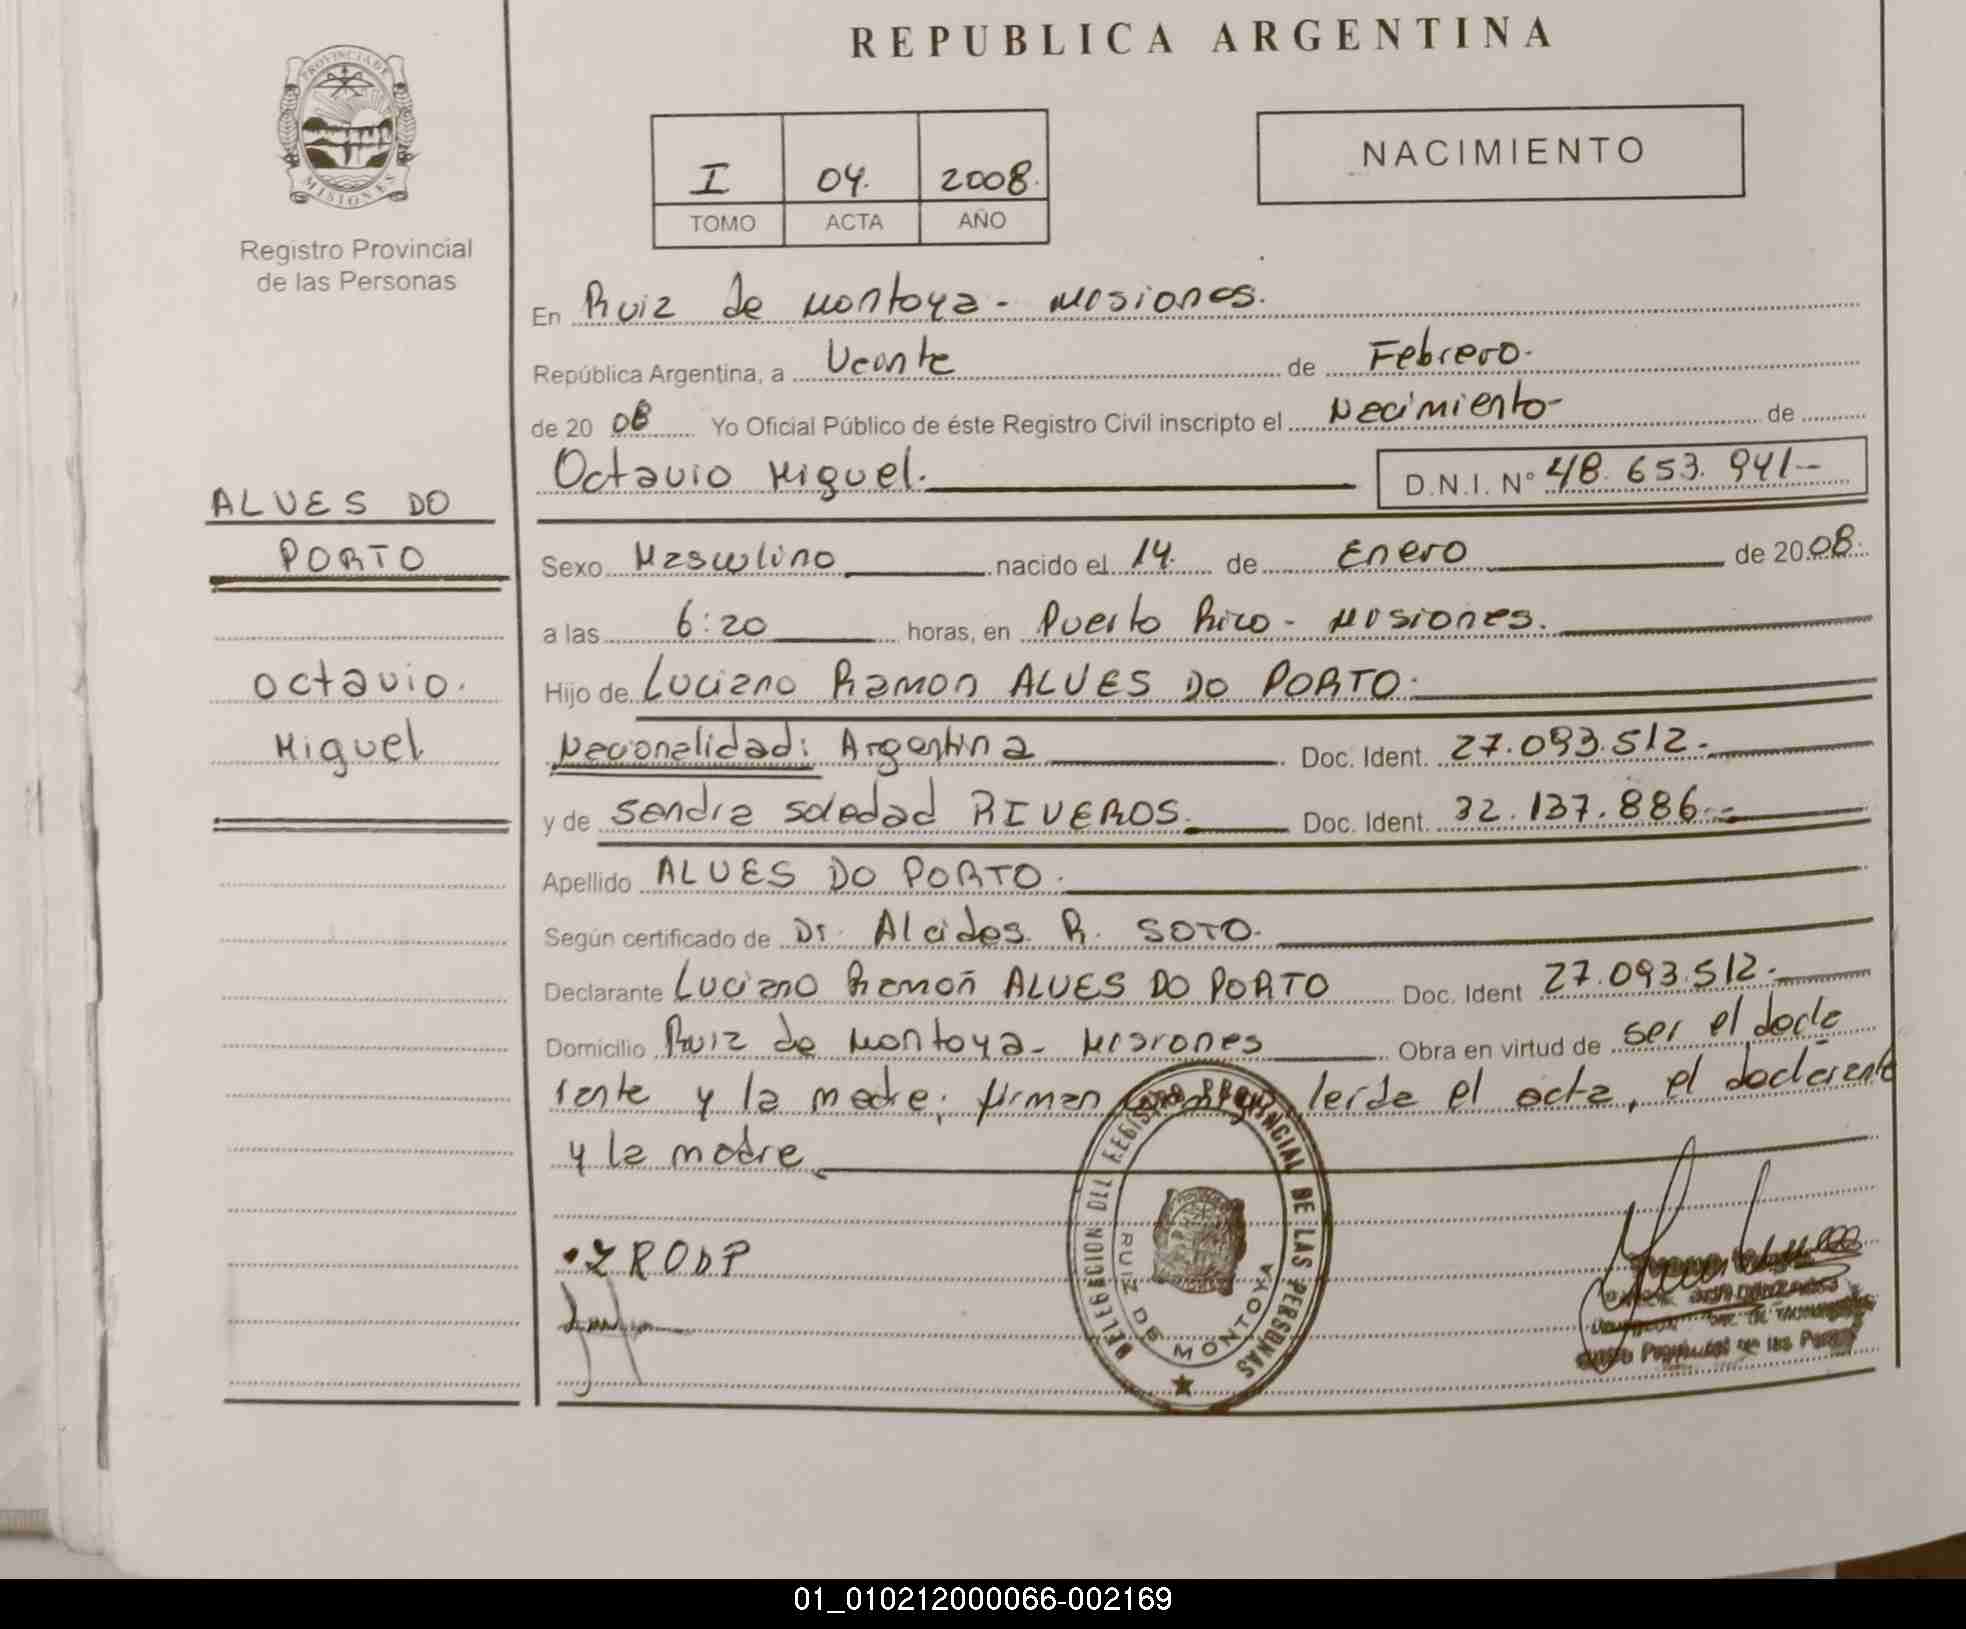 REPUBLICA ARGENTINA
PROVINCIA DE
MISIONES
Registro Provincial
de las Personas
I 04. 2008.
TOMO ACTA AÑO
NACIMIENTO
En Ruiz de Montoya - Misiones.
República Argentina, a Veinte de Febrero.
de 2008 Yo Oficial Público de éste Registro Civil inscripto el Nacimiento- de
Octavio Miguel. D.N.I. N° 48.653.941-
ALVES DO
PORTO
Octavio.
Miguel
Sexo Masculino nacido el 14. de Enero de 2008.
a las 6:20 horas, en Puerto Rico - Misiones.
Hijo de Luciano Ramon ALVES DO PORTO.
Nacionalidad: Argentina Doc. Ident. 27.093.512.-
y de Sandra Soledad RIVEROS. Doc. Ident. 32.137.886.-
Apellido ALVES DO PORTO.
Según certificado de Dr. Alcides R. SOTO.
Declarante Luciano Ramón ALVES DO PORTO Doc. Ident 27.093.512.-
Domicilio Ruiz de Montoya - Misiones Obra en virtud de ser el decla
rante y la madre; firman leída el acta, el declarante
y la madre
L R ODP
DELEGACION DEL REGISTRO PROVINCIAL DE LAS PERSONAS
RUIZ DE MONTOYA
01_010212000066-002169